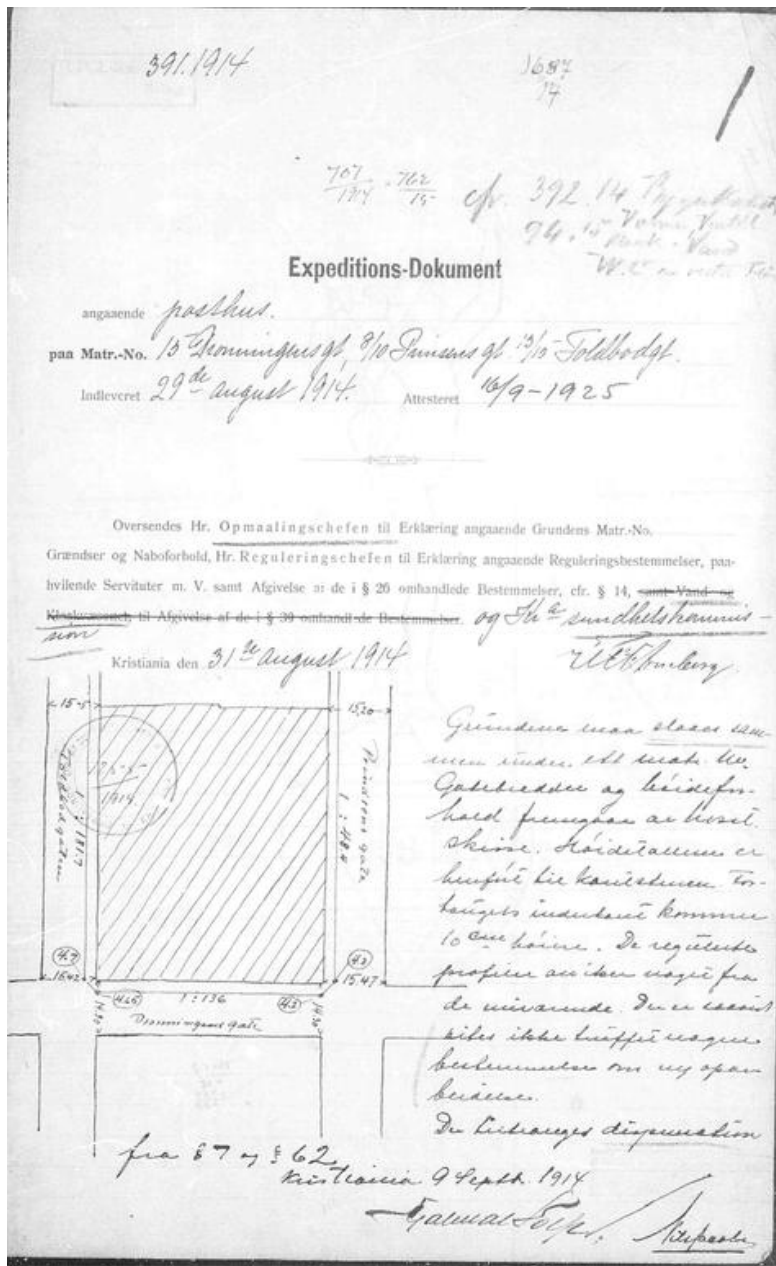 391.1914
1687
14
707
1914
762
15
cfr. 392.14
94.15
W.C.
Expeditions-Dokument
angaaende posthus.
paa Matr.-No. 15 Dronningens gt, 8/10 Prinsens gt 13/15 Toldbodgt.
Indleveret 29de august 1914. Attesteret 16/9-1925
Oversendes Hr. Opmaalingschefen til Erklæring angaaende Grundens Matr.-No.
Grændser og Naboforhold, Hr. Reguleringschefen til Erklæring angaaende Reguleringsbestemmelser, paa-
hvilende Servituter m. V. samt Afgivelse af de i § 26 omhandlede Bestemmelser, cfr. § 14, samt Vand- og
Kloakvæsenet, til Afgivelse af de i § 39 omhandlede Bestemmelser. og Kr.a sundhetskommis-
sion
Kristiania den 31te august 1914
15-5
15,20
1914.
Toldbodgaten
1 : 181.7
Prindsens gate
1 : 48.4
4.7
15.42
4.65
1 : 136
4.3
4.2
15.47
14.30
Dronningens gate
Grundene maa slaaes sam-
men under ett matr. No.
Gatebredder og høidefor-
hold fremgaar av hosst.
skisse. Høidetallene er
henført til kantstenen. For-
tougets inderkant kommer
10 cm høiere. De regulerte
profiler aviker noget fra
de nuværende. Der er
ikke truffet nogen
bestemmelse om ny opar-
beidelse.
Der tiltrænges dispensation
fra § 7 og § 62.
Kristiania 9 Septbr. 1914